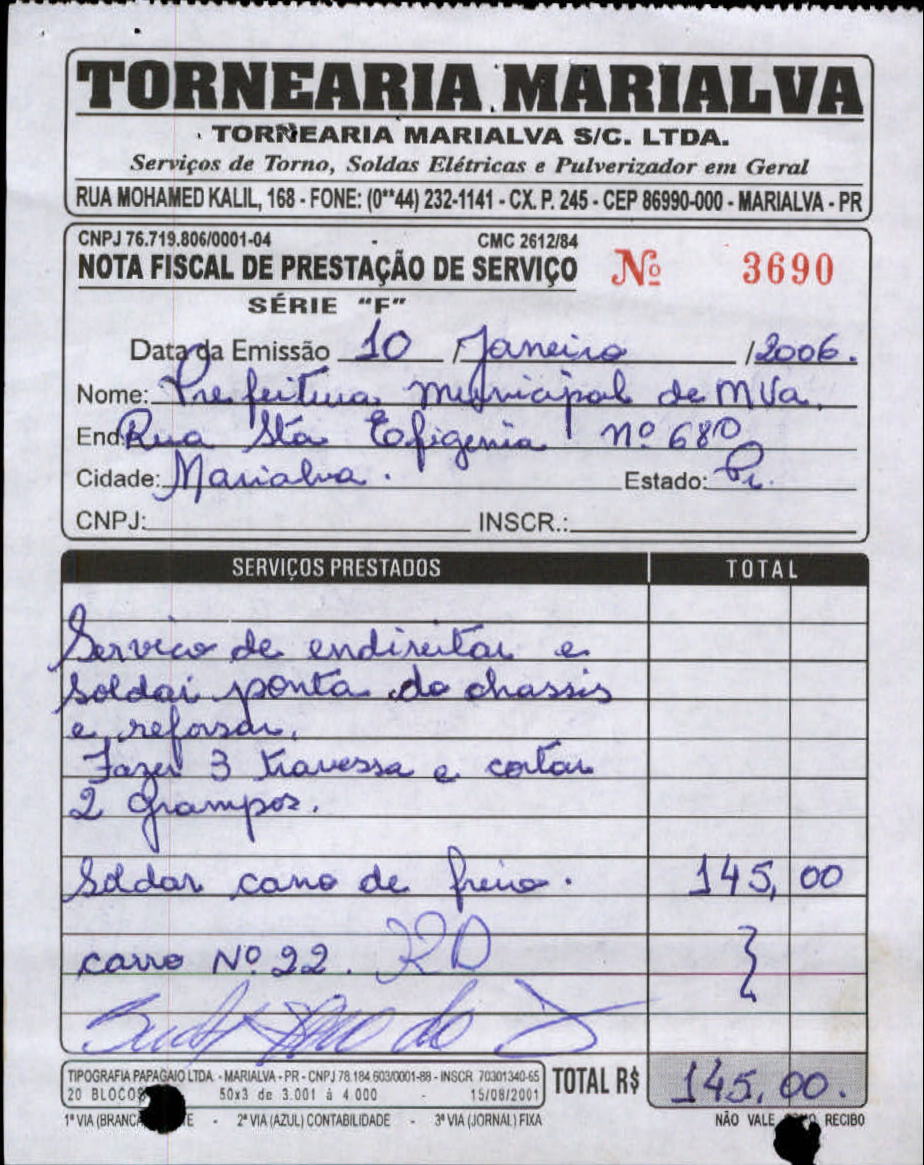 TORNEARIA MARIALVA
TORNEARIA MARIALVA S/C. LTDA.
Serviços de Torno, Soldas Elétricas e Pulverizador em Geral
RUA MOHAMED KALIL, 168 - FONE: (0**44) 232-1141 - CX. P. 245 - CEP 86990-000 - MARIALVA - PR
CNPJ 76.719.806/0001-04 CMC 2612/84
NOTA FISCAL DE PRESTAÇÃO DE SERVIÇO Nº 3690
SÉRIE "F"
Data da Emissão 10 / Janeiro / 2006.
Nome: Prefeitura Municipal de MVa.
End Rua Sta Efigenia nº 680
Cidade: Marialva. Estado: Pr.
CNPJ: INSCR.:
SERVIÇOS PRESTADOS TOTAL
Servico de endireitar e
Soldar ponta do chassis
e reforsar.
Fazer 3 travessa e cortar
2 grampos.
Soldar cano de freio. 145,00
carro Nº 22.
TIPOGRAFIA PAPAGAIO LTDA. - MARIALVA - PR - CNPJ 78.184.603/0001-88 - INSCR 70301340-65 TOTAL R$ 145,00.
20 BLOCOS 50x3 de 3.001 à 4.000 - 15/08/2001
1ª VIA (BRANCA - 2ª VIA (AZUL) CONTABILIDADE - 3ª VIA (JORNAL) FIXA NÃO VALE RECIBO